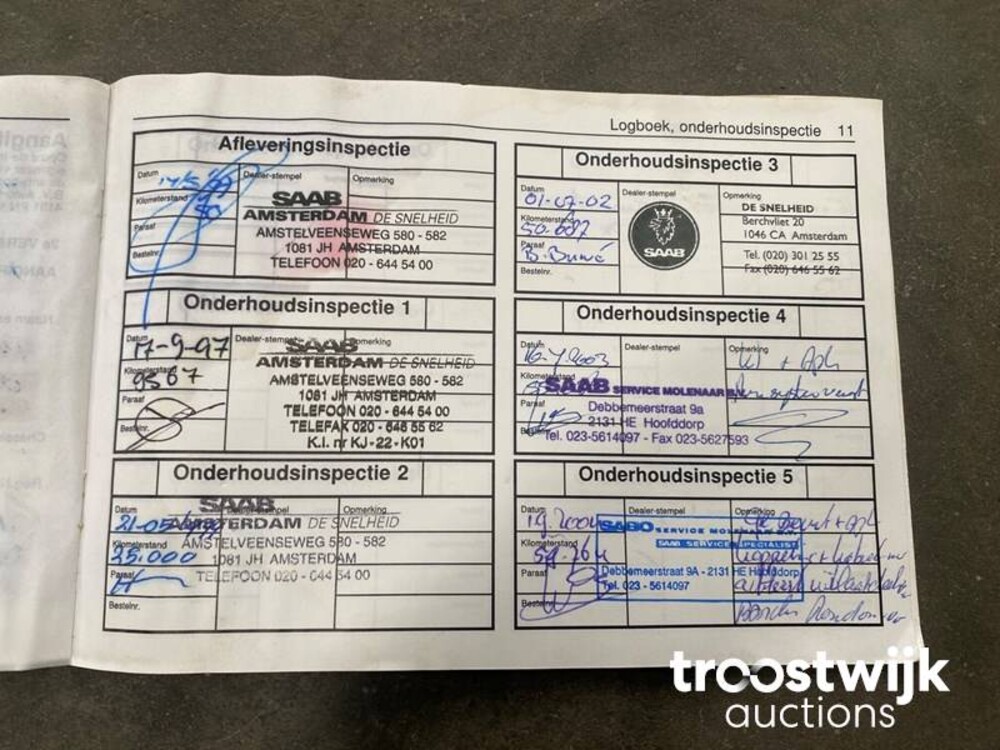 Logboek, onderhoudsinspectie 11
Afleveringsinspectie
Datum
Dealer-stempel
Opmerking
Kilometerstand
50
Paraaf
Bestelnr.
SAAB
AMSTERDAM DE SNELHEID
AMSTELVEENSEWEG 580 - 582
1081 JH AMSTERDAM
TELEFOON 020 - 644 54 00
Onderhoudsinspectie 1
Datum
17-9-97
Dealer-stempel
Opmerking
Kilometerstand
9567
Paraaf
Bestelnr.
SAAB
AMSTERDAM DE SNELHEID
AMSTELVEENSEWEG 580 - 582
1081 JH AMSTERDAM
TELEFOON 020 - 644 54 00
TELEFAX 020 - 646 55 62
K.I. nr KJ-22-K01
Onderhoudsinspectie 2
Datum
21-05-
Dealer-stempel
Opmerking
Kilometerstand
25.000
Paraaf
Bestelnr.
SAAB
AMSTERDAM DE SNELHEID
AMSTELVEENSEWEG 580 - 582
1081 JH AMSTERDAM
TELEFOON 020 - 644 54 00
Onderhoudsinspectie 3
Datum
01-07-02
Dealer-stempel
Opmerking
Kilometerstand
50.687
Paraaf
Bestelnr.
SAAB
DE SNELHEID
Berchvliet 20
1046 CA Amsterdam
Tel. (020) 301 25 55
Fax (020) 646 55 62
Onderhoudsinspectie 4
Datum
16-7-2003
Dealer-stempel
Opmerking
Kilometerstand
Paraaf
Bestelnr.
SAAB SERVICE MOLENAAR B.V.
Debbemeerstraat 9a
2131 HE Hoofddorp
Tel. 023-5614097 - Fax 023-5627593
Onderhoudsinspectie 5
Datum
Dealer-stempel
Opmerking
Kilometerstand
Paraaf
Bestelnr.
SABO SERVICE MOLENAAR B.V.
SAAB SERVICE SPECIALIST
Debbemeerstraat 9A - 2131 HE Hoofddorp
Tel. 023 - 5614097
troostwijk
auctions